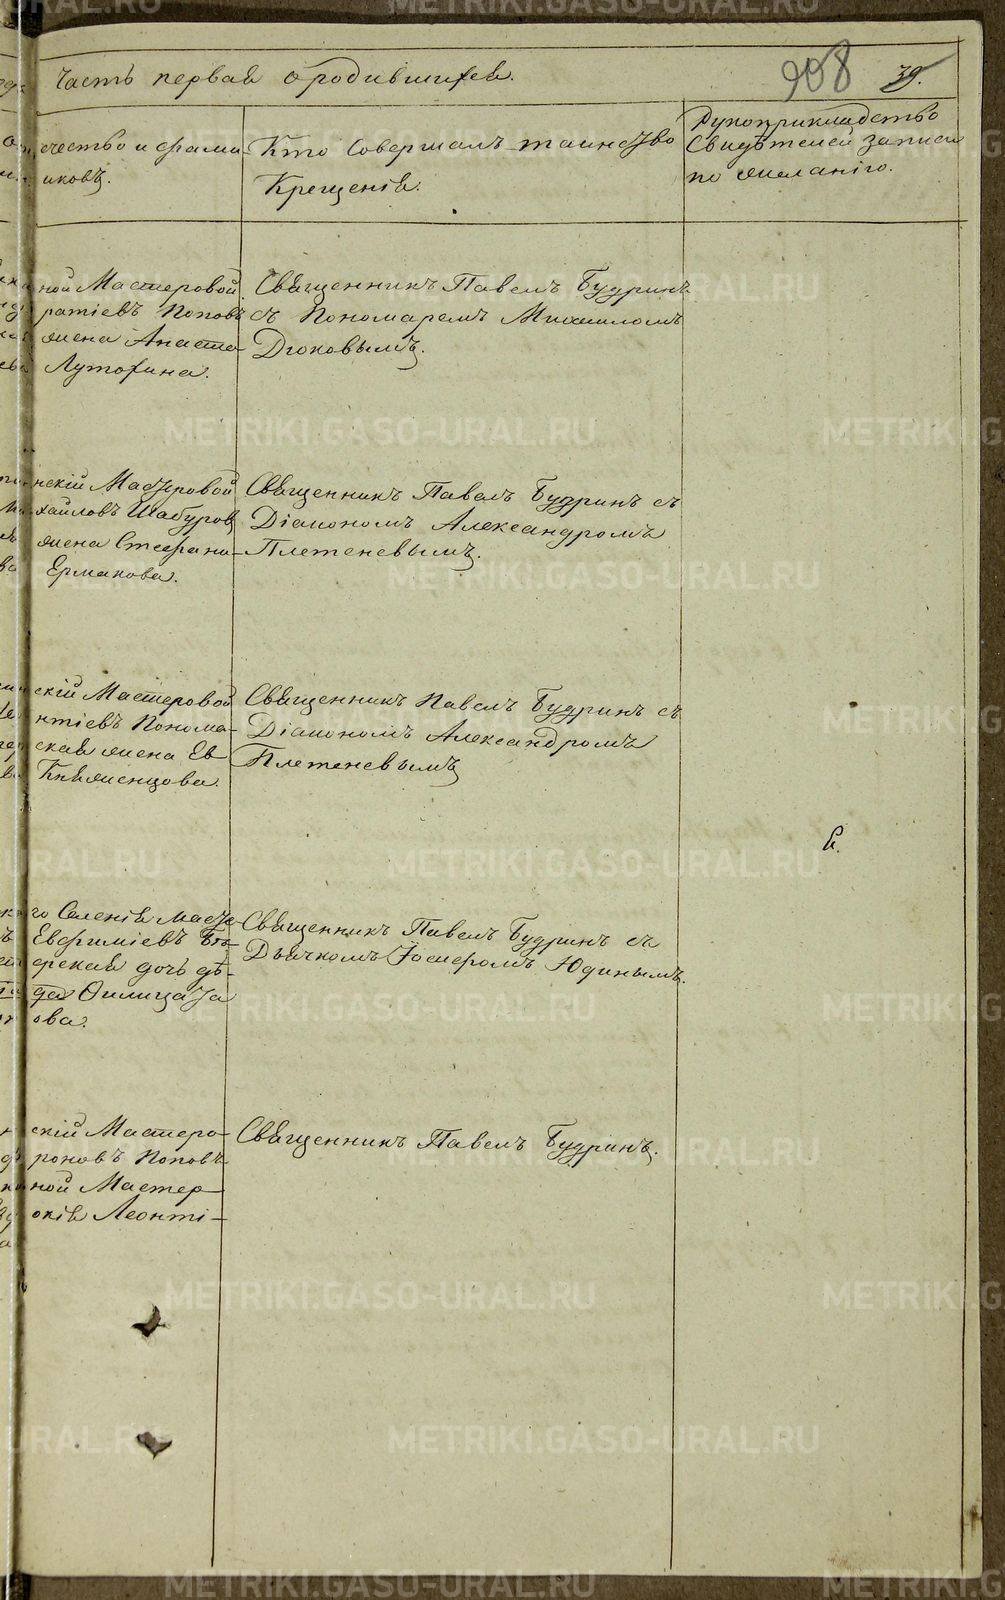 Часть первая о родившихся.
908 39.
очество и фами-
иковъ.
Кто совершалъ таинство
Крещенія.
Рукоприкладство
Свидѣтелей записи
по желанію.
ной Мастеровой
ратіевъ Поповъ
жена Анаста-
Лутохина.
Священникъ Павелъ Будринъ
съ Пономаремъ Михаиломъ
Дюковымъ.
нскій Мастеровой
хайловъ Шабуровъ
жена Стефани-
Ермакова.
Священникъ Павелъ Будринъ съ
Діакономъ Александромъ
Плетеневымъ.
скій Мастеровой
нтіевъ Понома-
ская жена Ев
Княженцова.
Священникъ Павелъ Будринъ съ
Діакономъ Александромъ
Плетеневымъ
го Селенія Масте
Евфиміевъ
рская дочь дѣ-
ова.
Священникъ Павелъ Будринъ съ
Дьячкомъ Іосифомъ Юдинымъ.
скій Мастеро-
роновъ Поповъ
ной Мастер
окія Леонті-
Священникъ Павелъ Будринъ.
METRIKI.GASO-URAL.RU